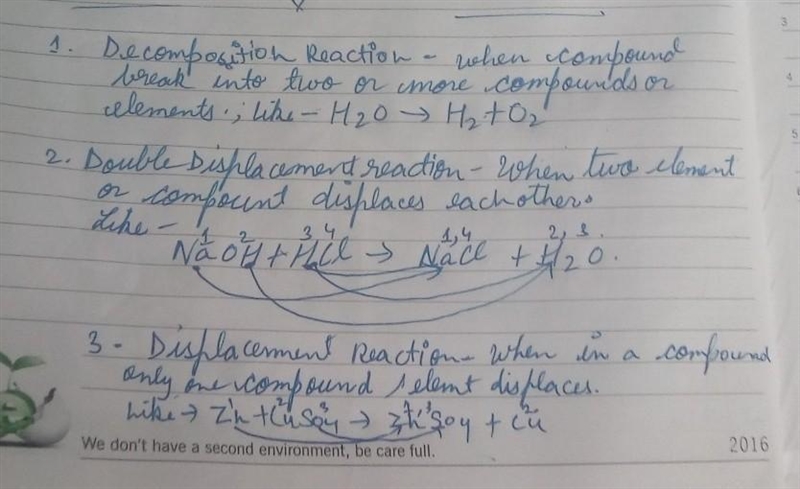 1. Decomposition Reaction - when compound
break into two or more compounds or
elements.; like - H2O → H2 + O2
2. Double Displacement reaction - When two element
or compount displaces each other.
Like -
1 2 3 4 1,4 2,3.
NaOH + HCl → NaCl + H2O.
3 - Displacement Reaction - When in a compound
only one compound / elemt displaces.
Like → Zn + CuSO4 → ZnSO4 + Cu
We don't have a second environment, be care full. 2016
3
4
5